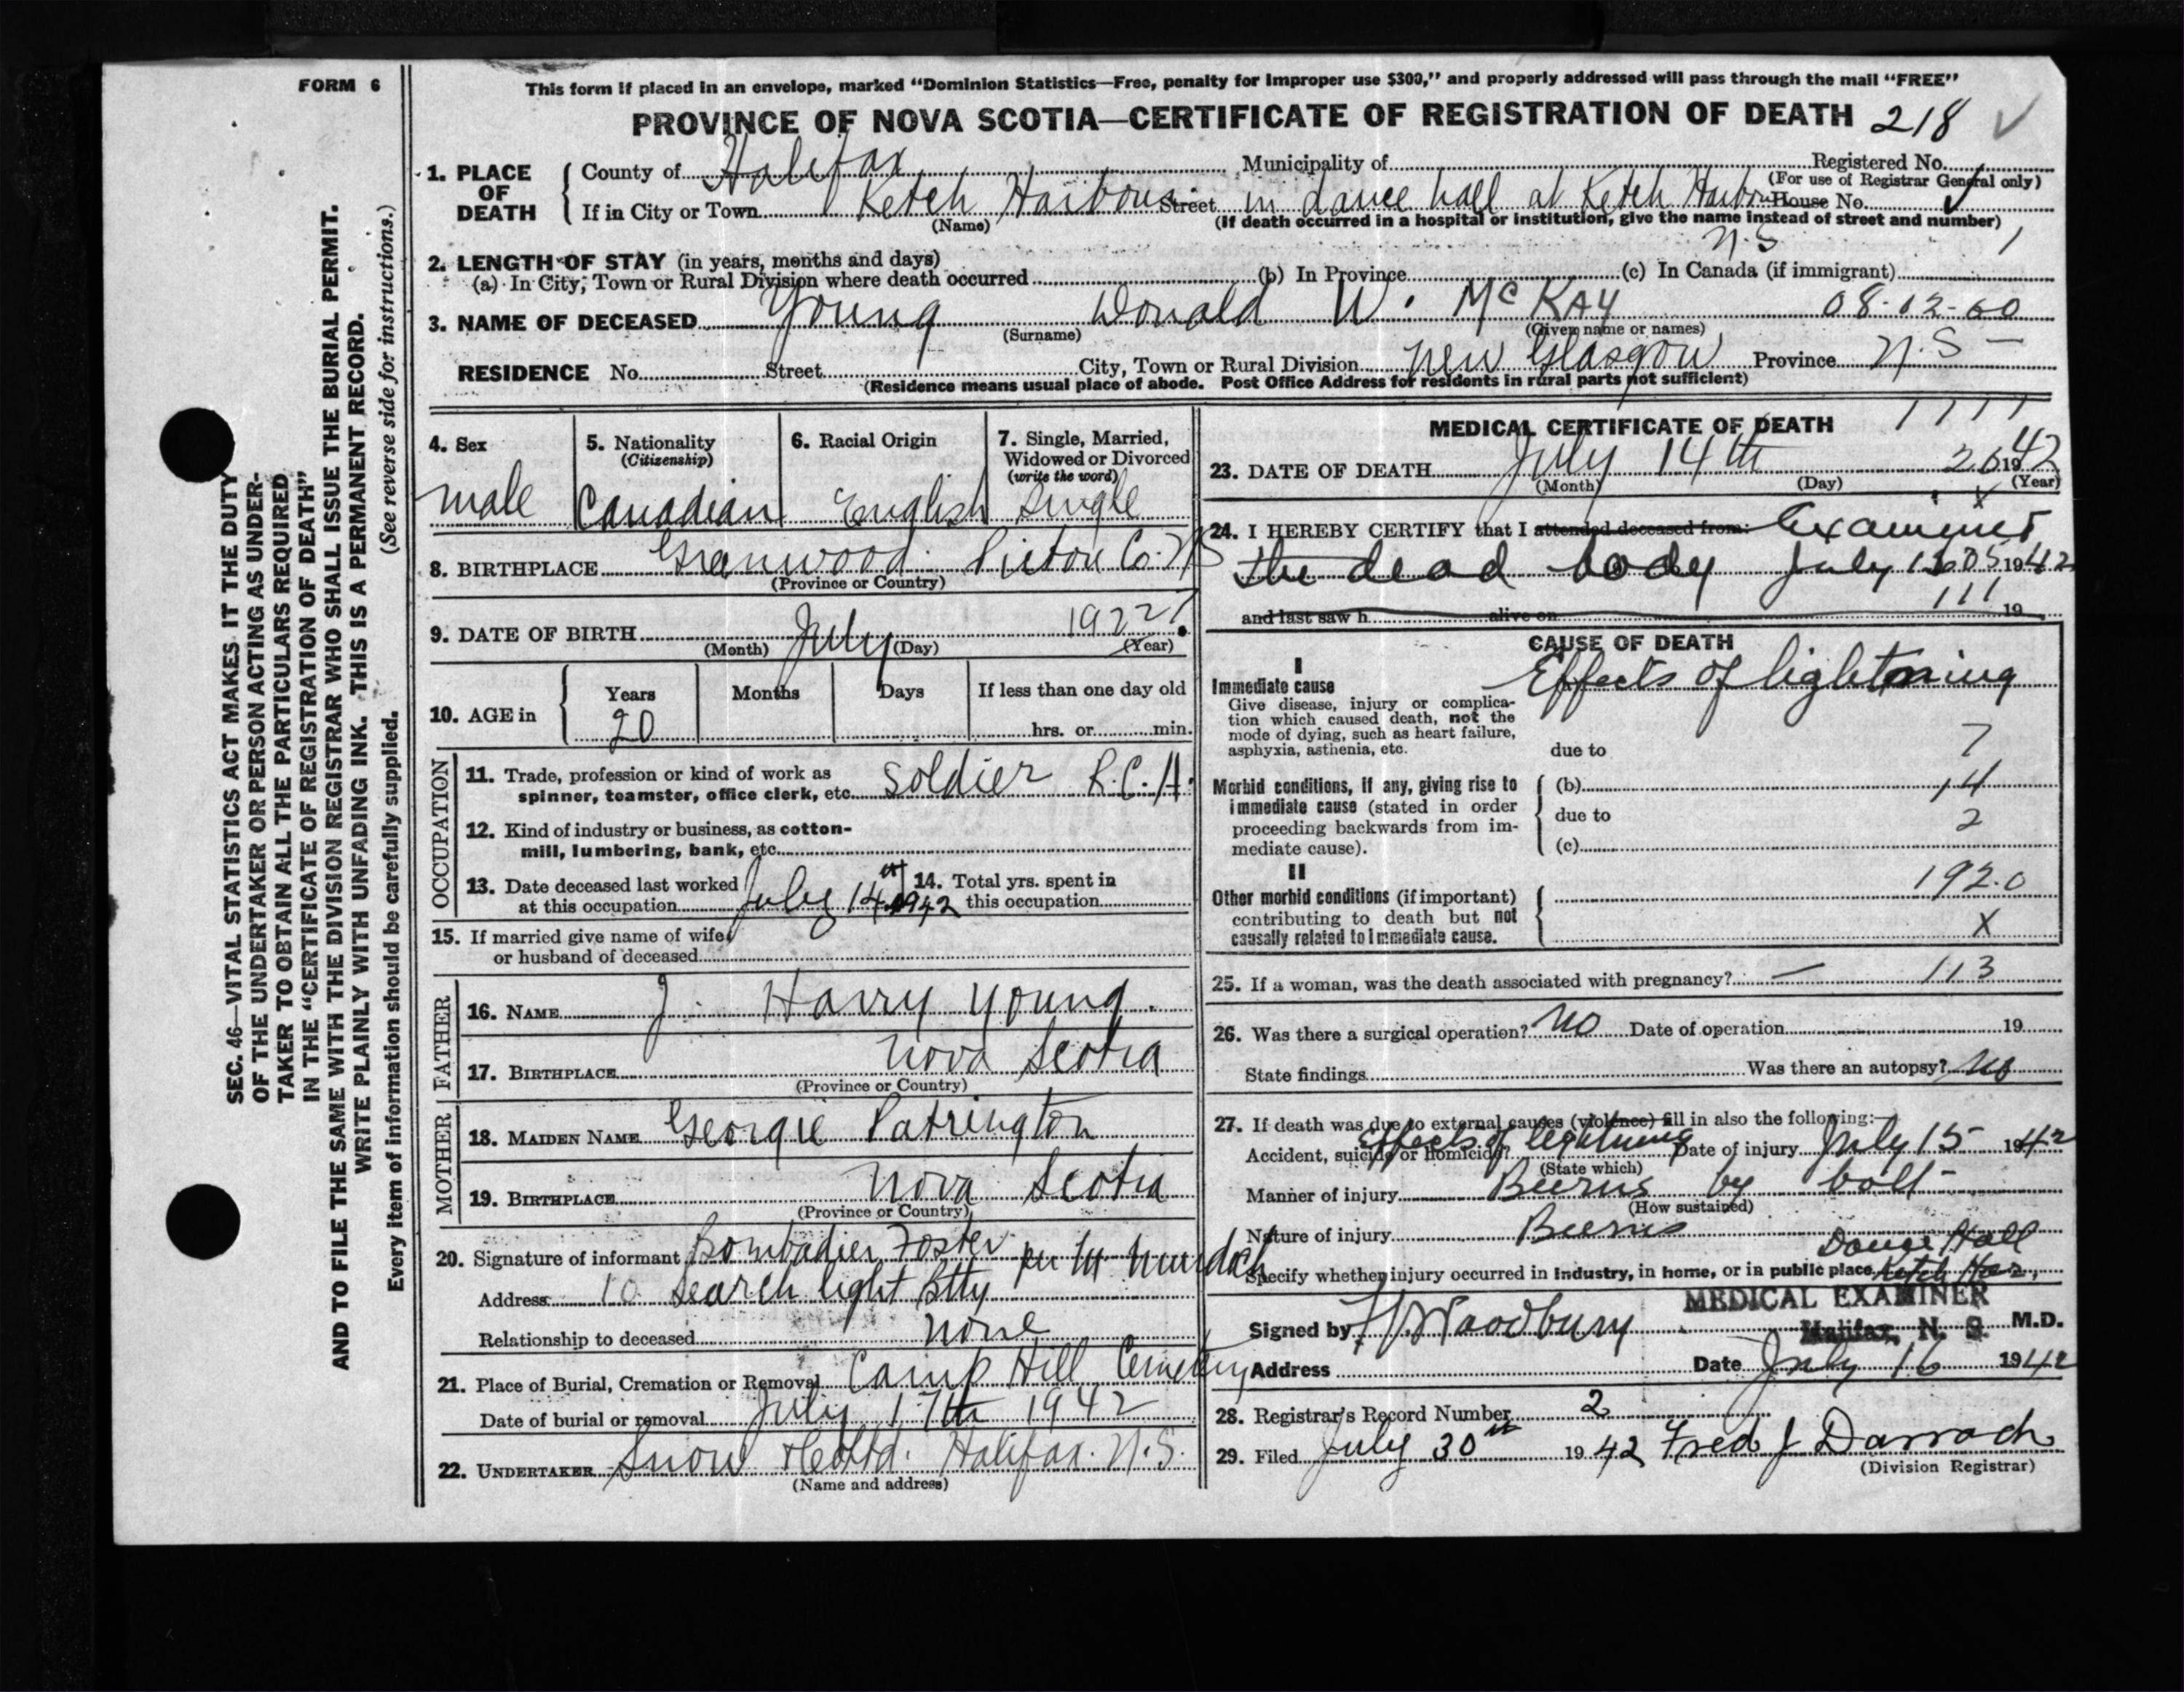 FORM 6
This form if placed in an envelope, marked "Dominion Statistics—Free, penalty for improper use $300," and properly addressed will pass through the mail "FREE"
PROVINCE OF NOVA SCOTIA—CERTIFICATE OF REGISTRATION OF DEATH 218
1. PLACE OF DEATH
County of Halifax Municipality of Registered No.
(For use of Registrar General only)
If in City or Town Ketch Harbour Street in dance hall at Ketch Harbr House No.
(Name) (If death occurred in a hospital or institution, give the name instead of street and number)
N.S 1
2. LENGTH OF STAY (in years, months and days)
(a) In City, Town or Rural Division where death occurred (b) In Province (c) In Canada (if immigrant)
3. NAME OF DECEASED Young Donald W. McKay 08-02-60
(Surname) (Given name or names)
RESIDENCE No. Street City, Town or Rural Division New Glasgow Province N.S-
(Residence means usual place of abode. Post Office Address for residents in rural parts not sufficient)
4. Sex
male
5. Nationality
(Citizenship)
Canadian
6. Racial Origin
English
7. Single, Married, Widowed or Divorced
(write the word)
Single
8. BIRTHPLACE Greenwood Pictou Co. NS
(Province or Country)
9. DATE OF BIRTH July 1922
(Month) (Day) (Year)
10. AGE in
Years Months Days If less than one day old
20 hrs. or min.
OCCUPATION
11. Trade, profession or kind of work as soldier R.C.A.
spinner, teamster, office clerk, etc.
12. Kind of industry or business, as cotton-
mill, lumbering, bank, etc.
13. Date deceased last worked
at this occupation July 14th 1942
14. Total yrs. spent in
this occupation
15. If married give name of wife
or husband of deceased
FATHER
16. NAME J. Harry Young.
17. BIRTHPLACE Nova Scotia
(Province or Country)
MOTHER
18. MAIDEN NAME Georgie Patrington
19. BIRTHPLACE Nova Scotia
(Province or Country)
20. Signature of informant Bombadier Foster per M Murdoch
Address 10 Search light Btty
Relationship to deceased none
21. Place of Burial, Cremation or Removal Camp Hill Cemetery
Date of burial or removal July 17th 1942
22. UNDERTAKER Snow & Co Ltd. Halifax. N.S.
(Name and address)
MEDICAL CERTIFICATE OF DEATH 1111
23. DATE OF DEATH July 14th 26 1942
(Month) (Day) (Year)
24. I HEREBY CERTIFY that I attended deceased from: Examined
the dead body July 15 1942
and last saw h alive on 111 19
CAUSE OF DEATH
I
Immediate cause Effects of lightning
Give disease, injury or complica-
tion which caused death, not the
mode of dying, such as heart failure,
asphyxia, asthenia, etc.
due to 7
Morbid conditions, if any, giving rise to
immediate cause (stated in order
proceeding backwards from im-
mediate cause).
(b) 14
due to 2
(c)
II
Other morbid conditions (if important)
contributing to death but not
causally related to immediate cause.
192.0
X
25. If a woman, was the death associated with pregnancy? — 113
26. Was there a surgical operation? No Date of operation 19
State findings Was there an autopsy? No
27. If death was due to external causes (violence) fill in also the following:
Accident, suicide or homicide? Effects of lightning Date of injury July 15 1942
(State which)
Manner of injury Burns by bolt-
(How sustained)
Nature of injury Burns
Specify whether injury occurred in industry, in home, or in public place Dance Hall Ketch Har.
Signed by Woodbury MEDICAL EXAMINER Halifax, N. S. M.D.
Address Date July 16 1942
28. Registrar's Record Number 2
29. Filed July 30th 1942 Fred J Darrach
(Division Registrar)
SEC. 46—VITAL STATISTICS ACT MAKES IT THE DUTY
OF THE UNDERTAKER OR PERSON ACTING AS UNDER-
TAKER TO OBTAIN ALL THE PARTICULARS REQUIRED
IN THE "CERTIFICATE OF REGISTRATION OF DEATH"
AND TO FILE THE SAME WITH THE DIVISION REGISTRAR WHO SHALL ISSUE THE BURIAL PERMIT.
WRITE PLAINLY WITH UNFADING INK. THIS IS A PERMANENT RECORD.
(See reverse side for instructions.)
Every item of information should be carefully supplied.